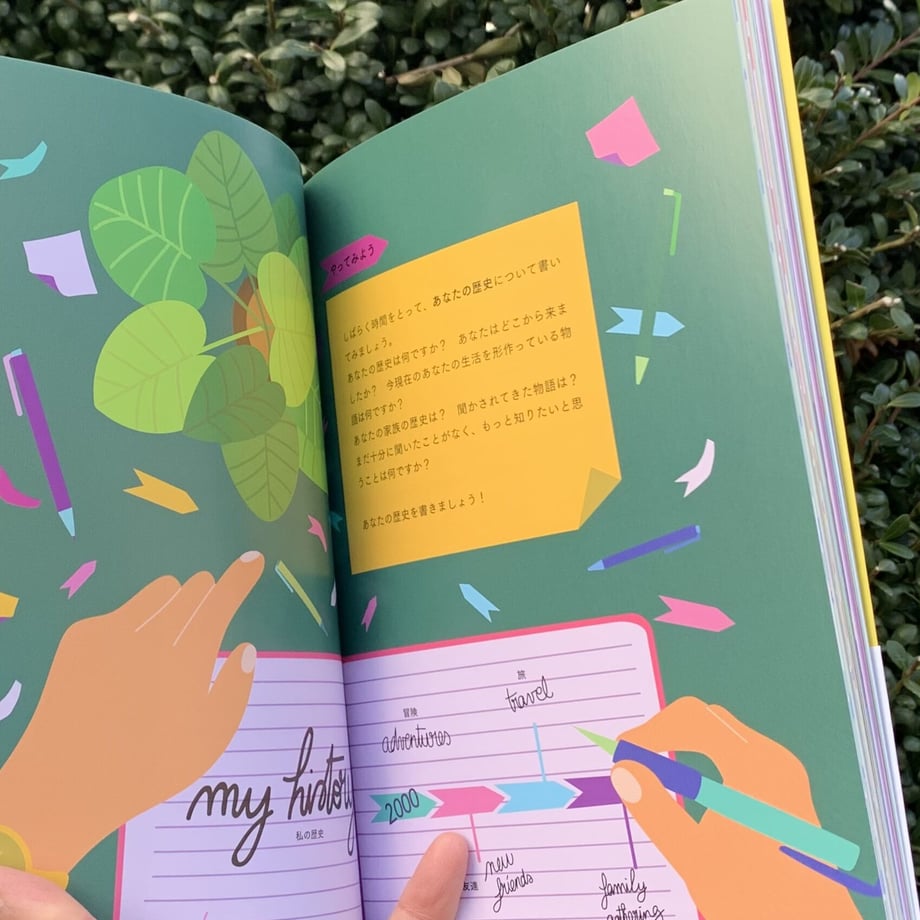 やってみよう
しばらく時間をとって、あなたの歴史について書い
てみましょう。
あなたの歴史は何ですか？　あなたはどこから来ま
したか？　今現在のあなたの生活を形作っている物
語は何ですか？
あなたの家族の歴史は？　聞かされてきた物語は？
まだ十分に聞いたことがなく、もっと知りたいと思
うことは何ですか？
あなたの歴史を書きましょう！
旅
travel
冒険
adventures
my history
私の歴史
2000
友達
new
friends
family
gathering